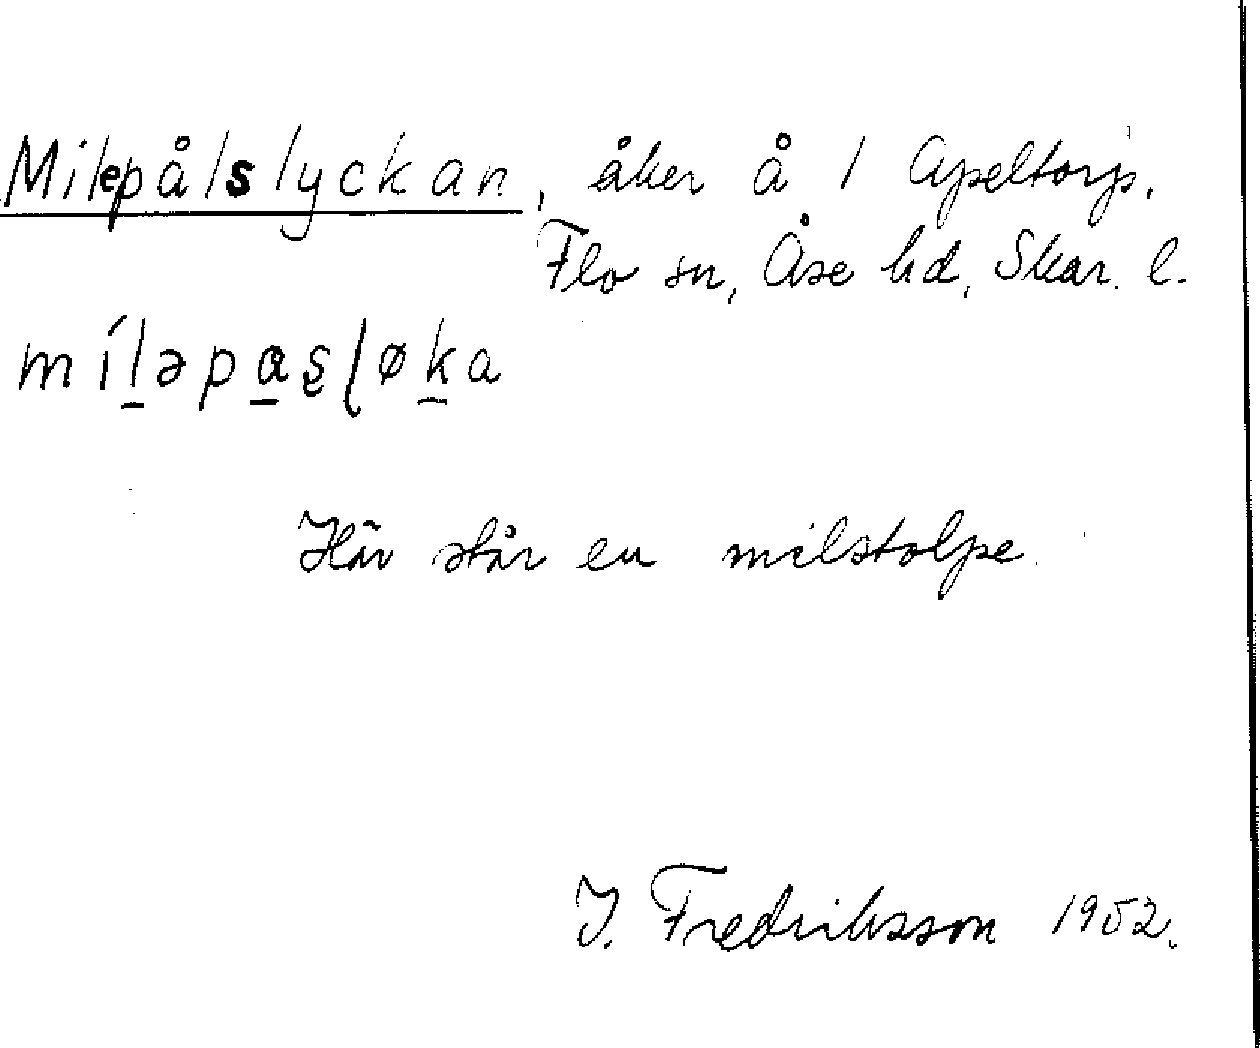 Milepålslyckan, åker å 1 Apeltorp.
Flo sn, Åse hd, Skar. l.
míl̠əpa̠s̢ɭøk̠a
Här står en milstolpe.
I. Fredriksson 1952.